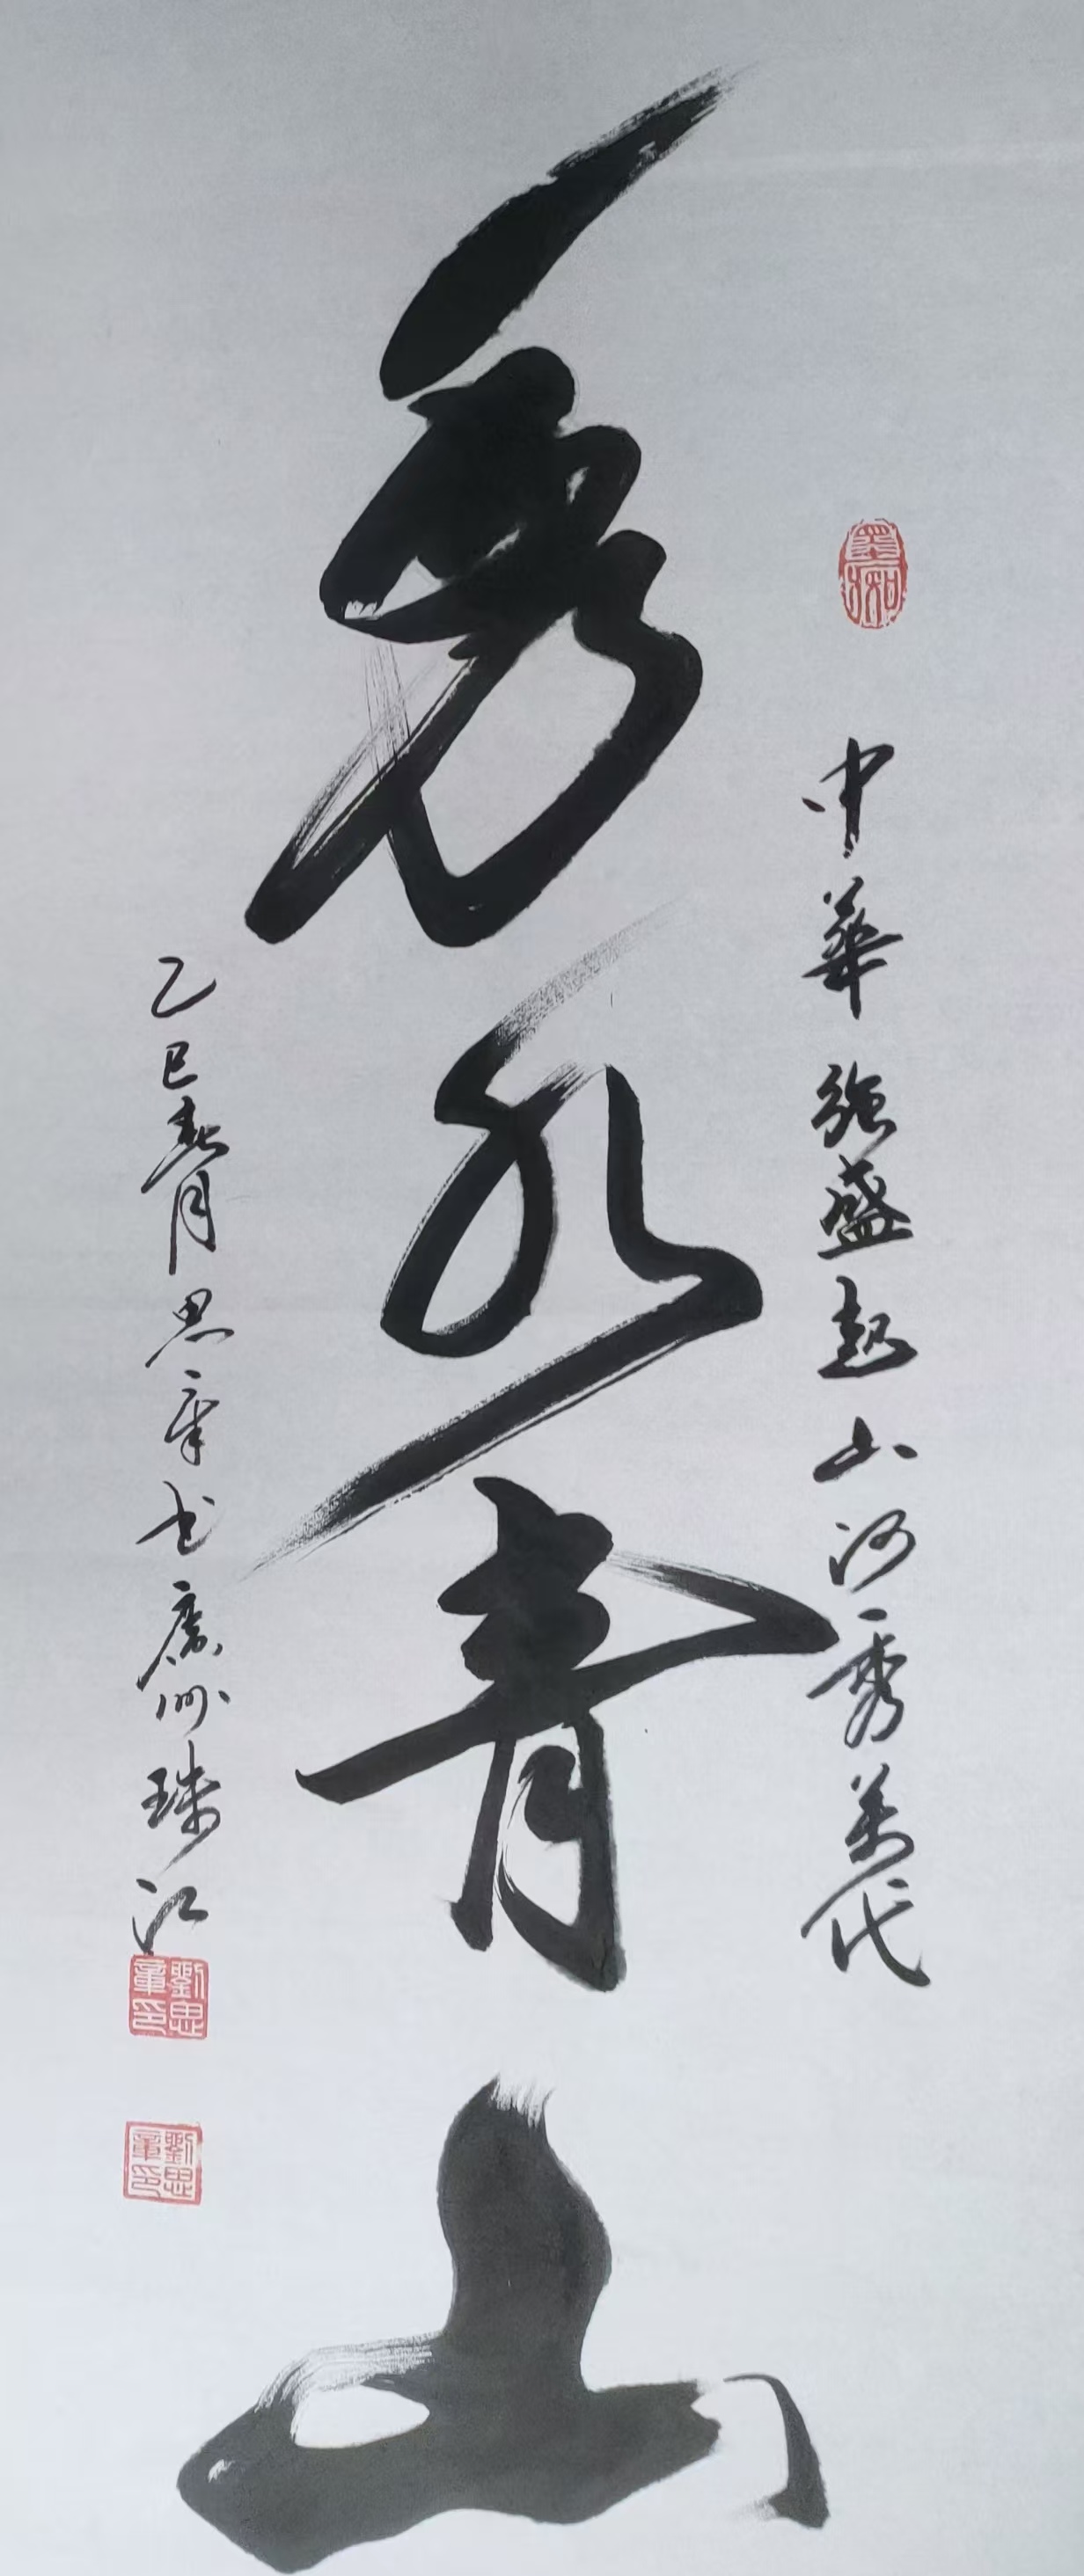 中華強盛起山河秀萬代
秀水青山
乙巳春月思章书廣州珠江
劉思章印
劉思章印